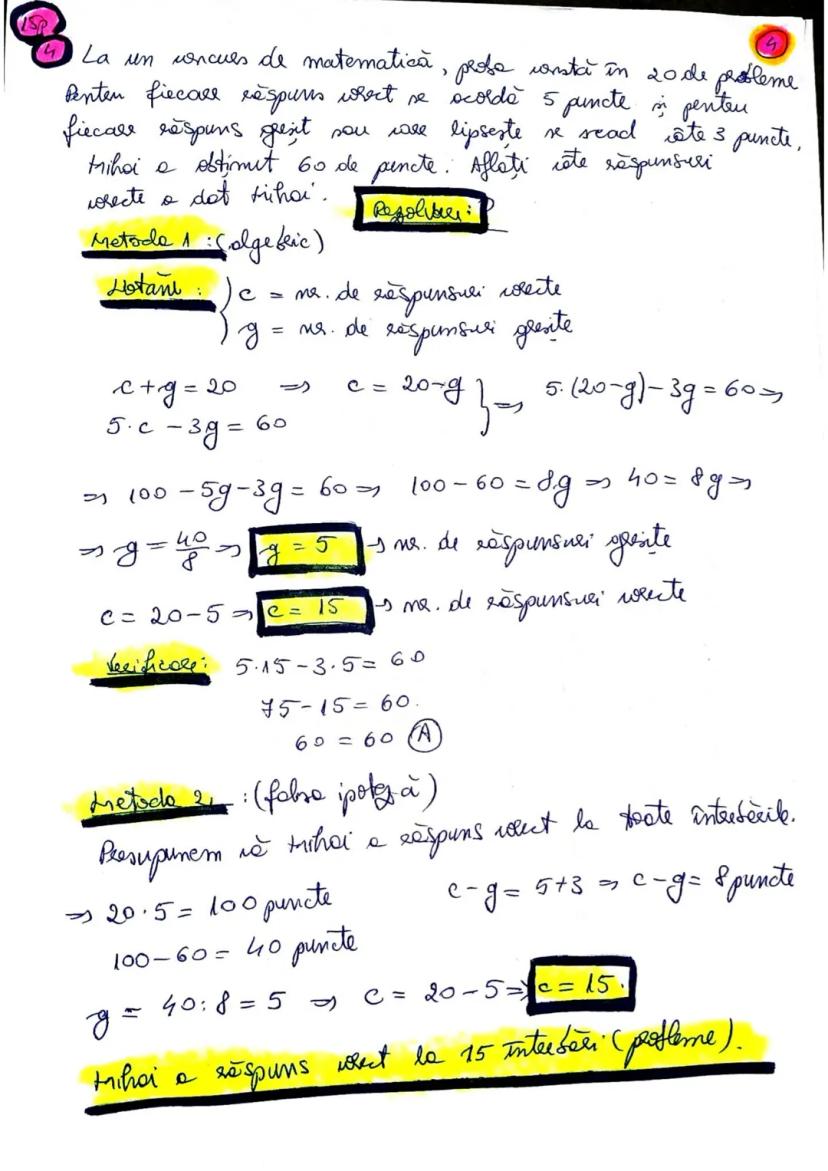 15p
4
4
La un concurs de matematică, proba constă în 20 de probleme
Pentru fiecare răspuns corect se acordă 5 puncte și pentru
fiecare răspuns greșit sau care lipsește se scad câte 3 puncte.
Mihai a obținut 60 de puncte. Aflați câte răspunsuri
corecte a dat Mihai.
Rezolvare:
Metoda 1: (algebric)
Notăm: c = nr. de răspunsuri corecte
g = nr. de răspunsuri greșite
c+g = 20 => c = 20-g } => 5·(20-g)-3g = 60 =>
5·c - 3g = 60
=> 100 - 5g - 3g = 60 => 100 - 60 = 8g => 40 = 8g =>
=> g = 40/8 => g = 5 → nr. de răspunsuri greșite
c = 20-5 => c = 15 → nr. de răspunsuri corecte
Verificare: 5·15 - 3·5 = 60
75 - 15 = 60.
60 = 60 (A)
Metoda 2: (falsa ipoteză)
Presupunem că Mihai a răspuns corect la toate întrebările.
=> 20·5 = 100 puncte c-g = 5+3 => c-g = 8 puncte
100-60 = 40 puncte
g = 40:8 = 5 => c = 20-5 => c = 15.
Mihai a răspuns corect la 15 întrebări (probleme).